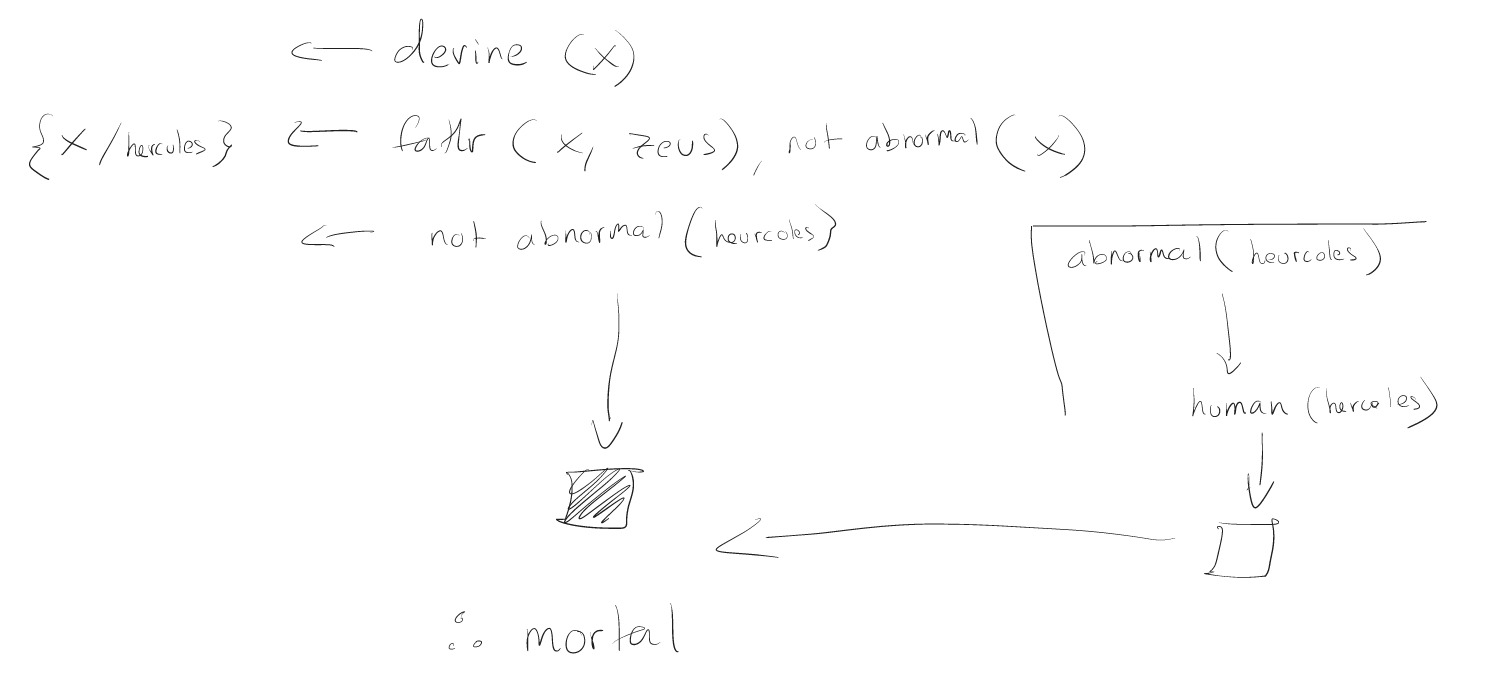 ← devine (x)
{x/hercules} ← fathr (x, zeus), not abnormal (x)
← not abnormal (heurcoles)
abnormal (heurcoles)
human (hercoles)
∴ mortal